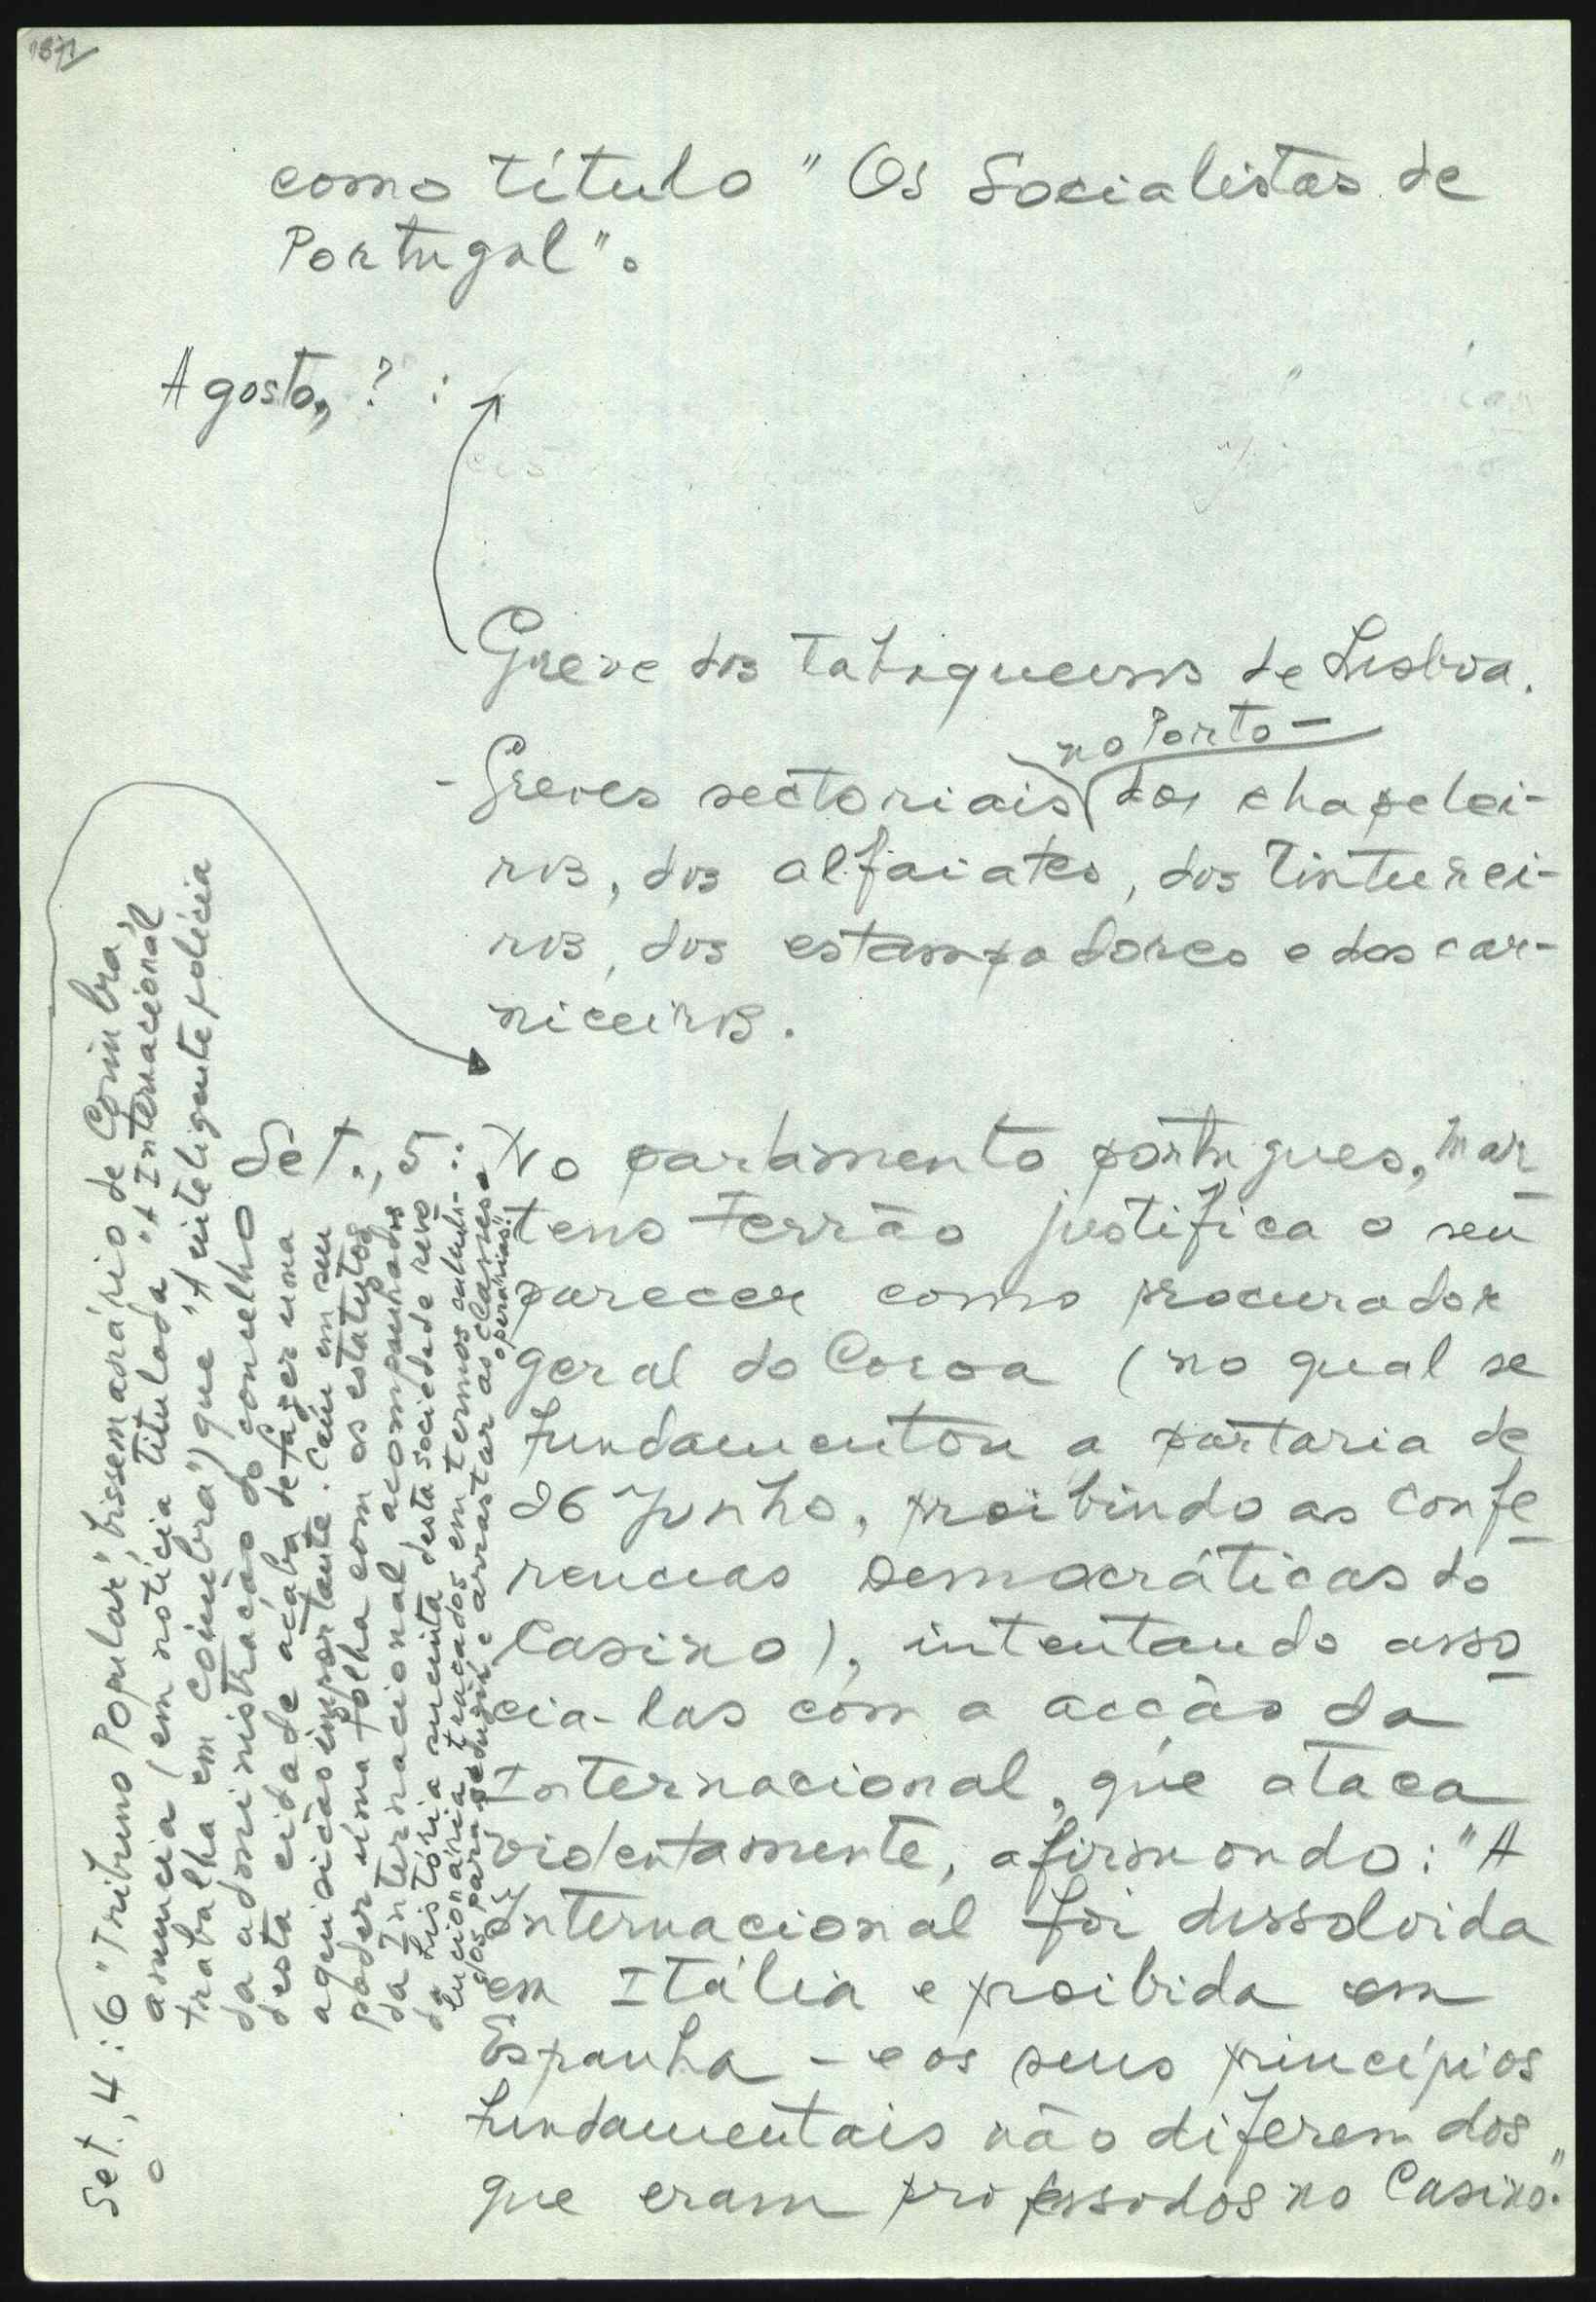 1871
como título "Os Socialistas de
Portugal".
Agosto, ? :
Greve dos tabaqueiros de Lisboa.
no Porto -
- Greves sectoriais dos chapelei-
ros, dos alfaiates, dos tinturei-
ros, dos estampadores e dos car-
niceiros.
Set., 5: No parlamento português, Mar-
tens Ferrão justifica o seu
parecer como procurador
geral da Coroa (no qual se
fundamentou a portaria de
26 Junho, proibindo as confe-
rencias Democráticas do
Casino), intentando asso-
cia-las com a acção da
Internacional, que ataca
violentamente, afirmando: "A
Internacional foi dissolvida
em Itália e proibida em
Espanha - e os seus princípios
fundamentais não diferem dos
que eram professados no Casino."
Set., 4: O "Tribuno Popular", bissemanário de Coimbra,
anuncia (em notícia titulada "A Internacional
trabalha em Coimbra") que "A inteligente polícia
da administração do concelho
desta cidade acaba de fazer uma
aquisição importante. Caiu em seu
poder uma folha com os estatutos
da Internacional, acompanhados
da história sucinta desta sociedade revo-
lucionária, traçados em termos
para seduzir e arrastar as classes
operárias".